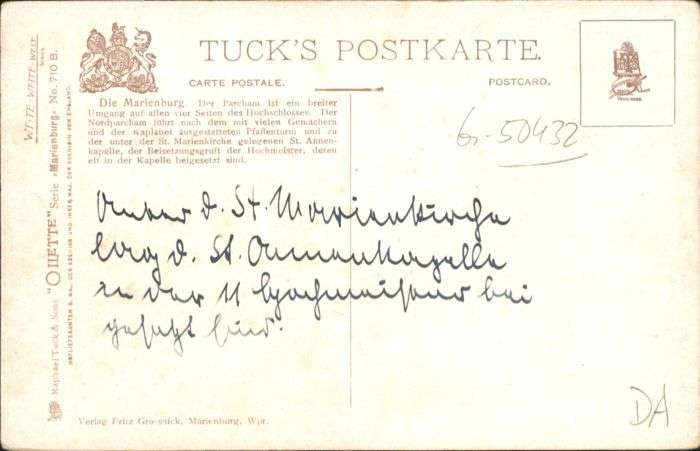 TUCK'S POSTKARTE.
CARTE POSTALE.
POSTCARD.
Die Marienburg. Der Parcham ist ein breiter
Umgang auf allen vier Seiten des Hochschlosses. Der
Nordparcham führt nach dem mit vielen Gemächern
und der Kaplanei ausgestatteten Pfaffenturm und zu
der unter der St. Marienkirche gelegenen St. Annen-
kapelle, der Beisetzungsgruft der Hochmeister, deren
elf in der Kapelle beigesetzt sind.
6-50432
Unter d. St. Marienkirche
lag d. St. Annenkapelle
in der 11 Hochmeister bei
gesetzt sind.
DA
Verlag Fritz Marienburg, Wpr.
Raphael Tuck & Sons' "OILETTE" Serie "Marienburg" No. 710 B.
HOFLIEFERANTEN S. MAJ. DES KÖNIGS UND IHRER MAJ. DER KÖNIGIN VON ENGLAND.